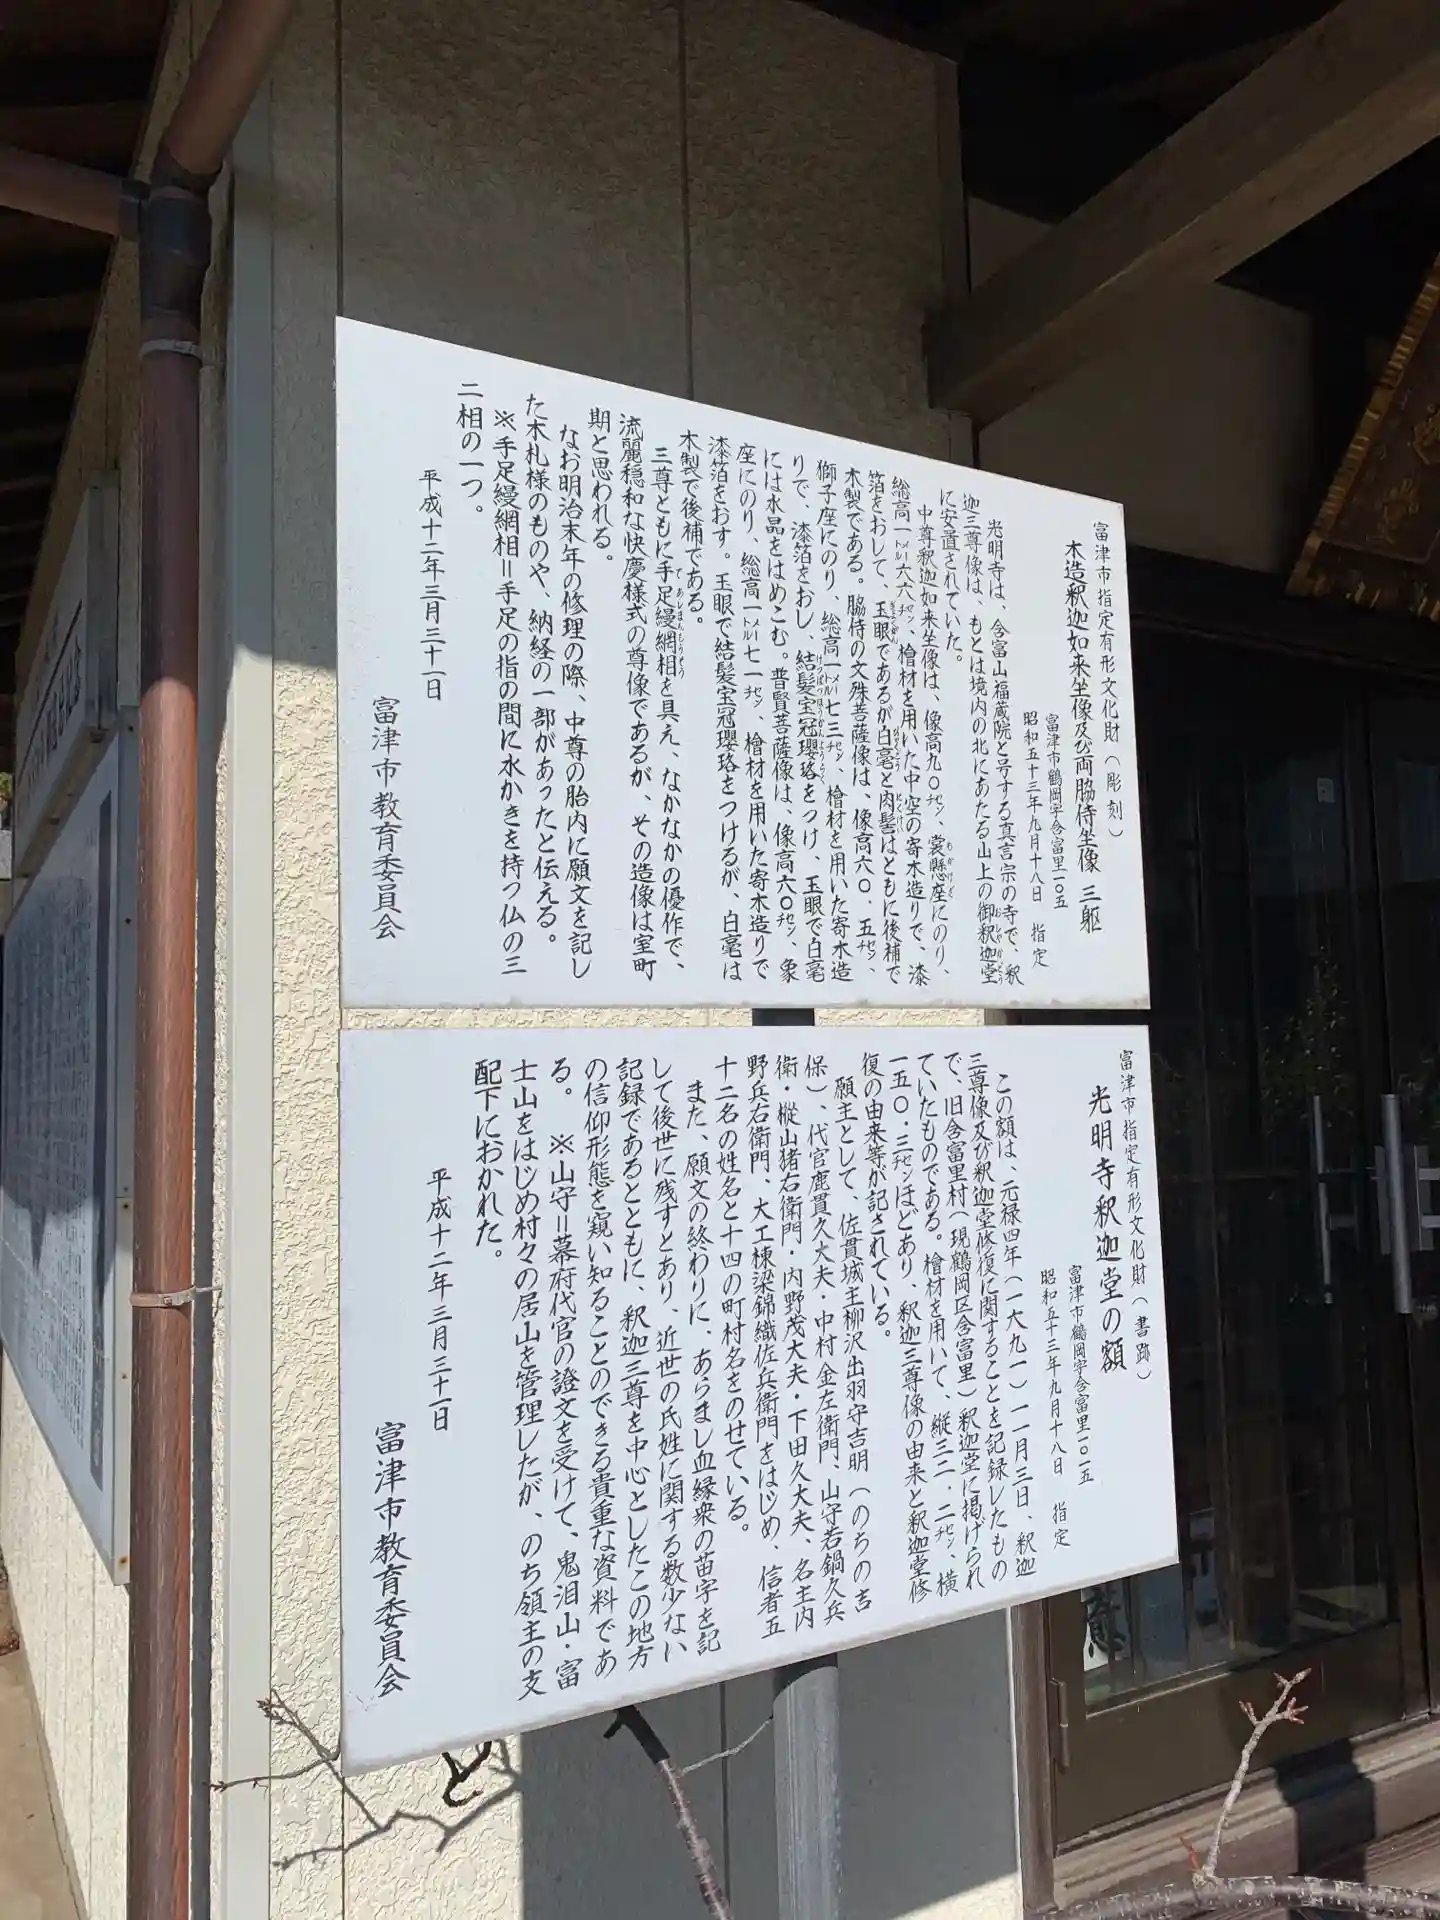 富津市指定有形文化財(彫刻)
木造釈迦如来坐像及び両脇侍坐像 三躯
富津市鶴岡字含富里一〇五
昭和五十三年九月十八日 指定
光明寺は、含富山福蔵院と号する真言宗の寺で、釈
迦三尊像は、もとは境内の北にあたる山上の御釈迦堂
に安置されていた。
中尊釈迦如来坐像は、像高九〇㌢、裳懸座にのり、
総高一㍍六六㌢、檜材を用いた中空の寄木造りで、漆
箔をおして、玉眼であるが白毫と肉髻はともに後補で
木製である。脇侍の文殊菩薩像は、像高六〇．五㌢、
獅子座にのり、総高一㍍七三㌢、檜材を用いた寄木造
りで、漆箔をおし、結髪宝冠瓔珞をつけ、玉眼で白毫
には水晶をはめこむ。普賢菩薩像は、像高六〇㌢、象
座にのり、総高一㍍七一㌢、檜材を用いた寄木造りで
漆箔をおす。玉眼で結髪宝冠瓔珞をつけるが、白毫は
木製で後補である。
三尊ともに手足縵網相を具え、なかなかの優作で、
流麗穏和な快慶様式の尊像であるが、その造像は室町
期と思われる。
なお明治末年の修理の際、中尊の胎内に願文を記し
た木札様のものや、納経の一部があったと伝える。
※手足縵網相＝手足の指の間に水かきを持つ仏の三
二相の一つ。
平成十二年三月三十一日
富津市教育委員会
富津市指定有形文化財(書跡)
光明寺釈迦堂の額
富津市鶴岡字含富里一〇一五
昭和五十三年九月十八日 指定
この額は、元禄四年(一六九一)一一月三日、釈迦
三尊像及び釈迦堂修復に関することを記録したもの
で、旧含富里村(現鶴岡区含富里)釈迦堂に掲げられ
ていたものである。檜材を用いて、縦三二．二㌢、横
一五〇．三㌢ほどあり、釈迦三尊像の由来と釈迦堂修
復の由来等が記されている。
願主として、佐貫城主柳沢出羽守吉明(のちの吉
保)、代官鹿貫久大夫・中村金左衛門、山守若鍋久兵
衛・樅山猪右衛門・内野茂大夫・下田久大夫、名主内
野兵右衛門、大工棟梁錦織佐兵衛門をはじめ、信者五
十二名の姓名と十四の町村名をのせている。
また、願文の終わりに、あらまし血縁衆の苗字を記
して後世に残すとあり、近世の氏姓に関する数少ない
記録であるとともに、釈迦三尊を中心としたこの地方
の信仰形態を窺い知ることのできる貴重な資料であ
る。 ※山守＝幕府代官の證文を受けて、鬼泪山・富
士山をはじめ村々の居山を管理したが、のち領主の支
配下におかれた。
平成十二年三月三十一日
富津市教育委員会